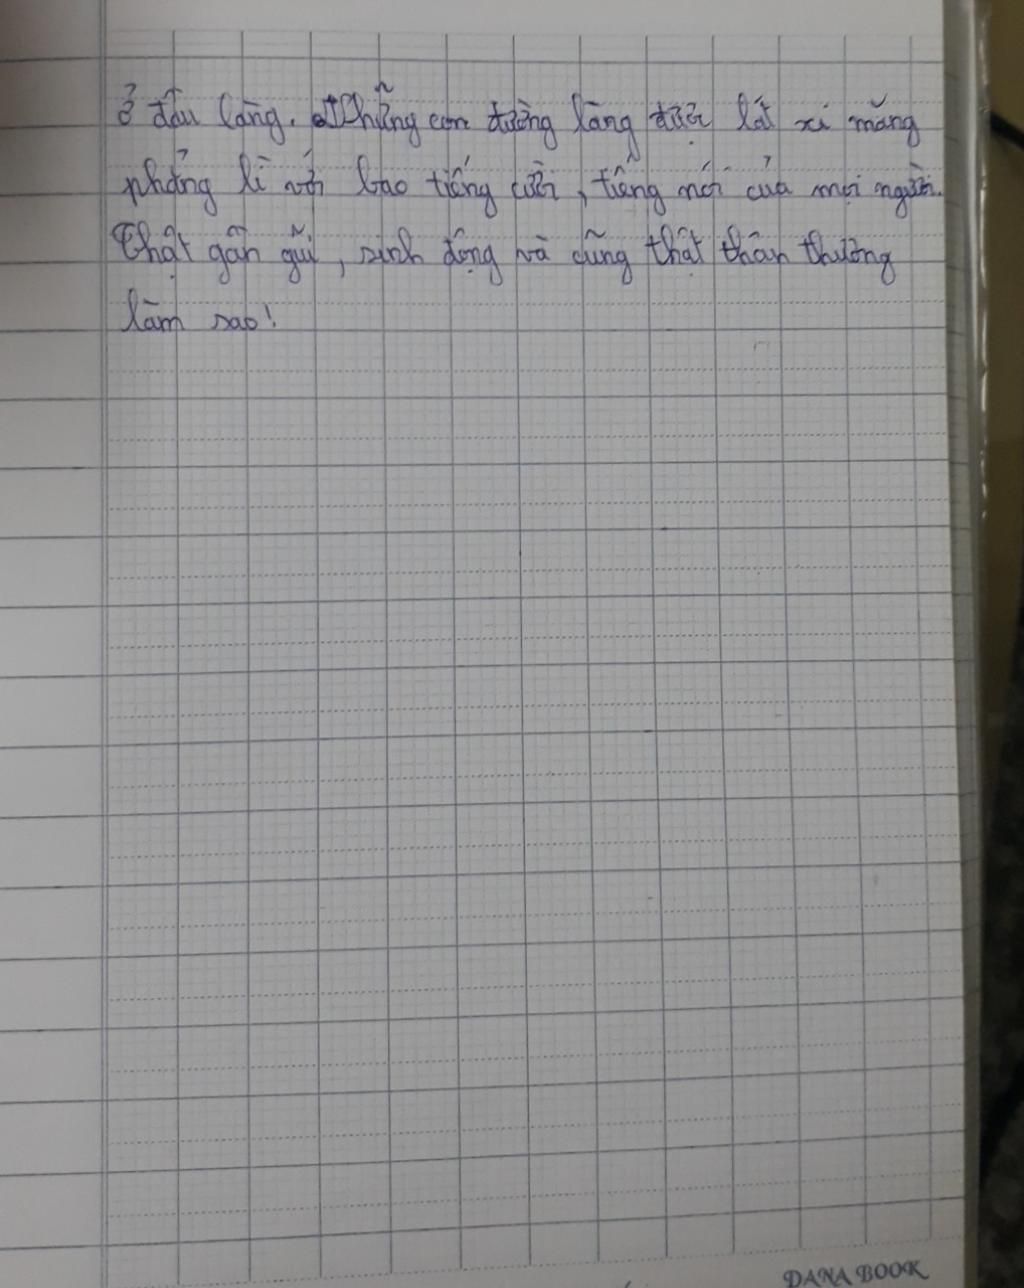 ở đầu làng. Những con đường làng được lát xi măng
phẳng lì với bao tiếng cười, tiếng nói của mọi người.
Thật gần gũi, sinh động và cũng thật thân thương
làm sao!
DANA BOOK